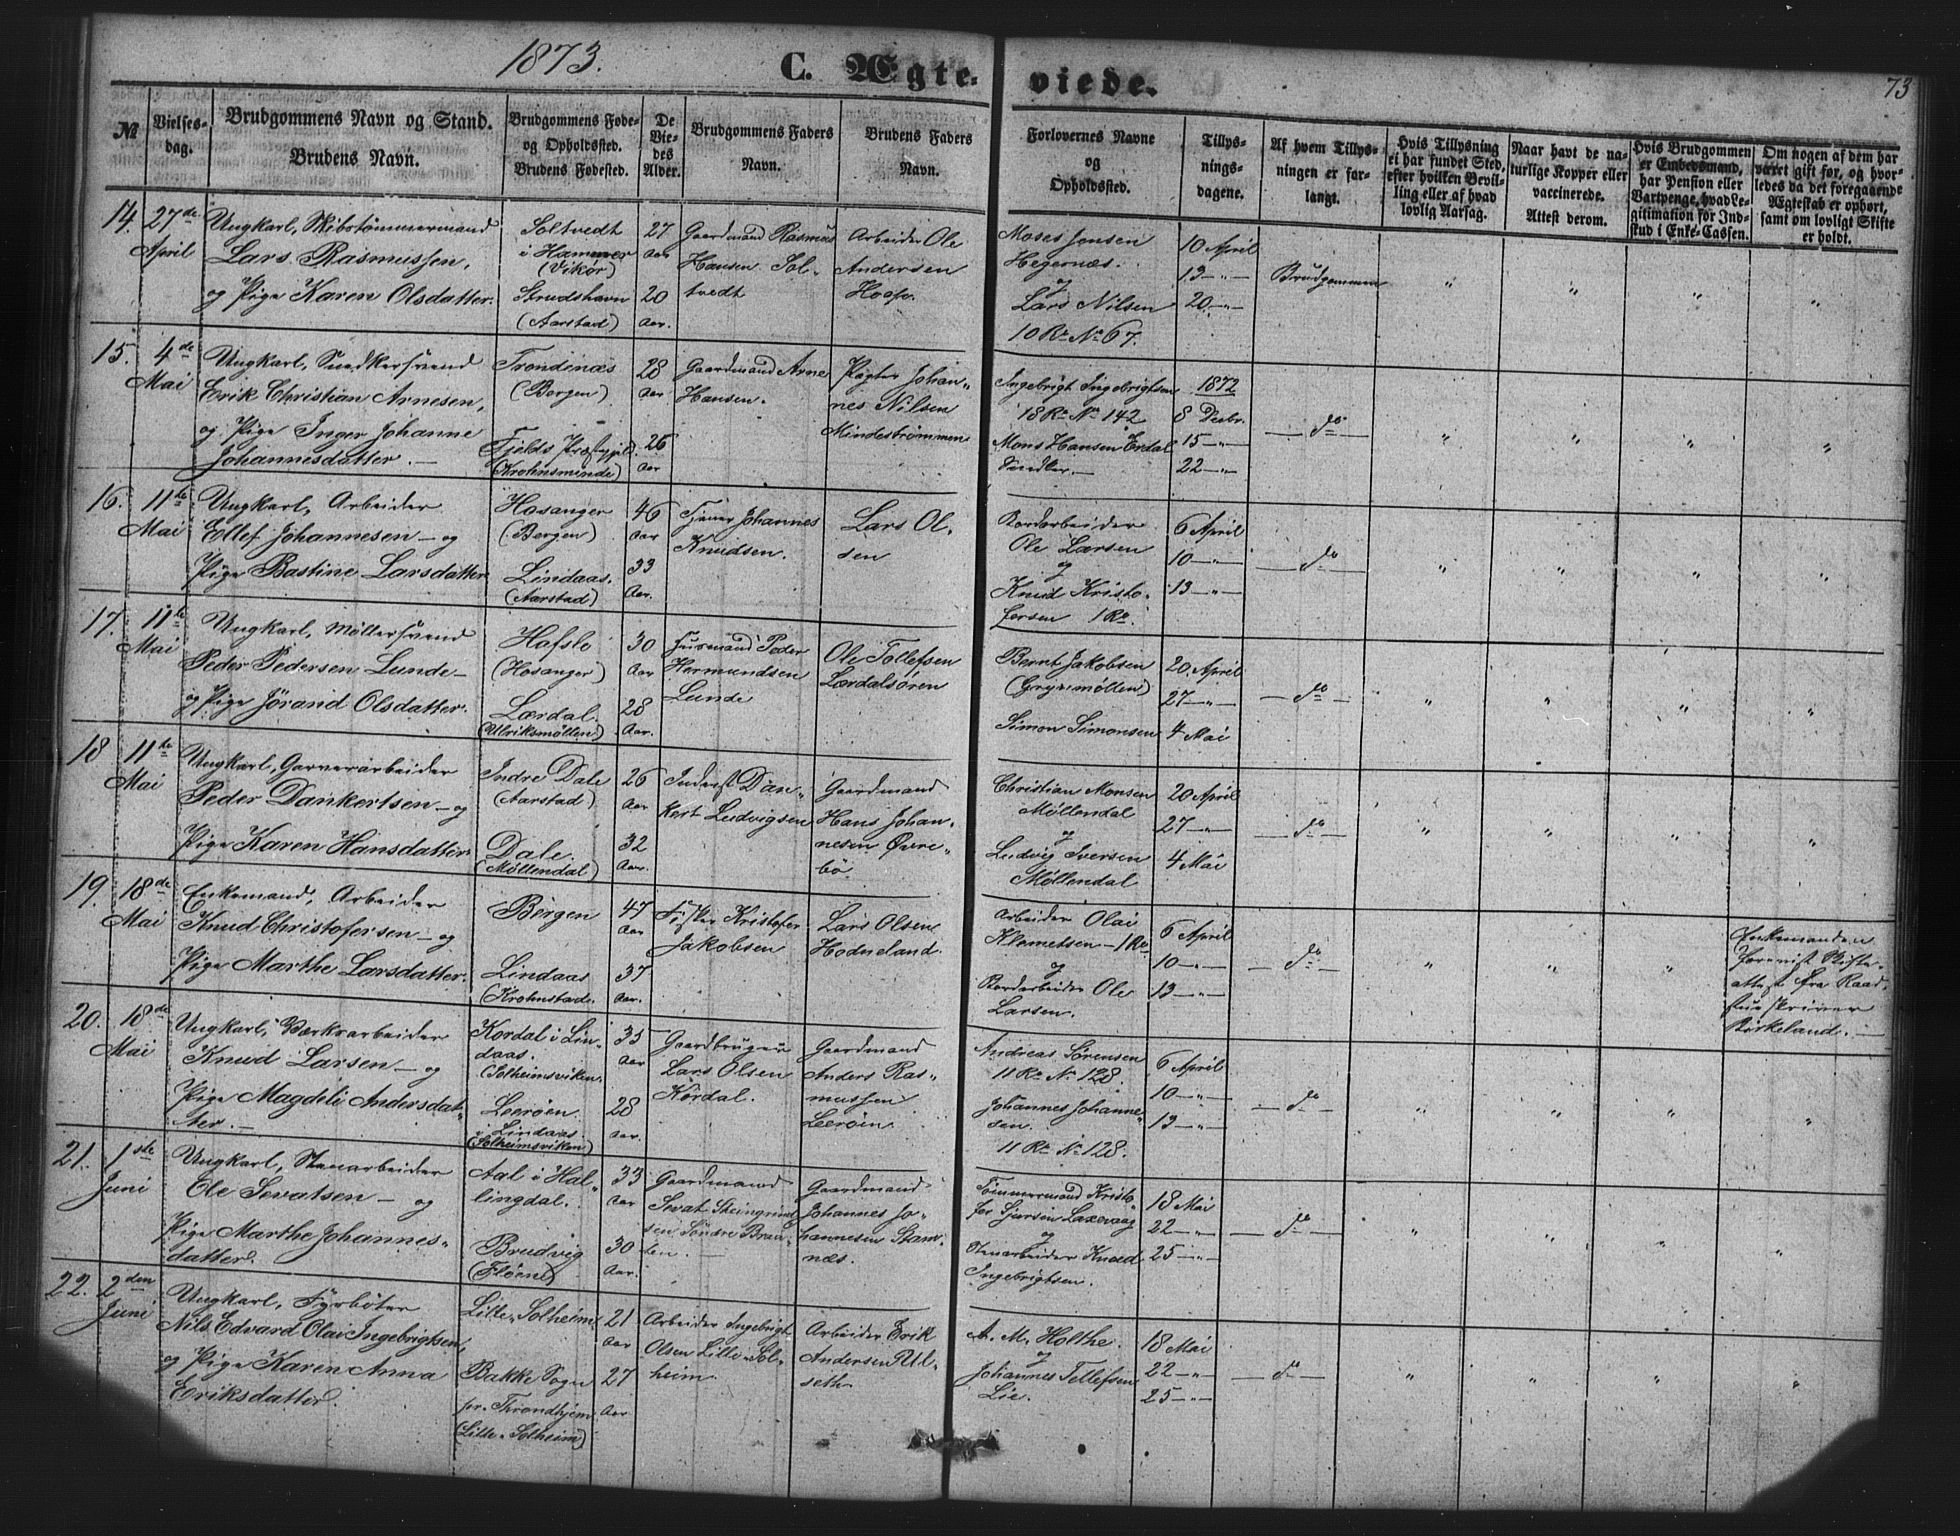 1873.
C. Ægte-
viede.
73
№
Vielses-
dag.
Brudgommens Navn og Stand.
Brudens Navn.
Brudgommens Føde-
og Opholdssted.
Brudens Fødested.
De
Vie-
des
Alder.
Brudgommens Faders
Navn.
Brudens Faders
Navn.
Forlovernes Navne
og
Opholdssted.
Tillys-
nings-
dagene.
Af hvem Tillys-
ningen er for-
langt.
Hvis Tillysning
ei har fundet Sted,
efter hvilken Bevil-
ling eller af hvad
lovlig Aarsag.
Naar havt de na-
turlige Kopper eller
vaccinerede.
Attest derom.
Hvis Brudgommen
er Embedsmand,
har Pension eller
Vartpenge, hvad Le-
gitimation for Ind-
skud i Enke-Cassen.
Om nogen af dem har
været gift før, og hvor-
ledes da det foregaaende
Ægteskab er ophørt,
samt om lovligt Skifte
er holdt.
14.
27de
April
Ungkarl, Skibstømmermand
Lars Rasmussen,
og Pige Karen Olsdatter.
Soltvedt
i Hammer
(Vikør)
Strudshavn
(Aarstad)
27
Aar
20
Aar.
Gaardmand Rasmus
Hansen Sol-
tvedt
Arbeider Ole
Andersen
Hoop.
Moses Jensen
Hegernæs.
og
Lars Nilsen
10 Re No 67.
10 April
13 — " —
20 — " —
Brudgommen
" " " "
15.
4de
Mai
Ungkarl, Snedkersvend
Erik Christian Arnesen,
og Pige Inger Johanne
Johannesdatter. —
Trondenæs
(Bergen)
Fjelds Præstgjeld.
(Krohnsminde)
28
Aar
26
Aar
Gaardmand Arne
Hansen.
Pagter Johan-
nes Nilsen
Mindestrømmen
Ingebrigt Ingebrigtsen
18 Re No 142
Mons Hansen Erdal
Snedker. —
1872
8 Decbr.
15 — " —
22 — " —
— do —
" " " "
16.
11te
Mai
Ungkarl, Arbeider
Ellef Johannesen — og
Pige Bastine Larsdatter
Hosanger
(Bergen)
Lindaas.
(Aarstad)
46
Aar
33
Aar.
Tjener Johannes
Knudsen.
Lars Ol-
sen
Bordarbeider
Ole Larsen
og
Knud Kristo-
fersen 1 Re.
6 April
10 — " —
13 — " —
— do —
" " " "
17.
11te
Mai
Ungkarl, Møllersvend
Peder Pedersen Lunde —
og Pige Jørand Olsdatter.
Hafslo
(Hosanger)
Lærdal.
(Ulriksmøllen)
30
Aar
28
Aar.
Husmand Peder
Hermundsen
Lunde
Ole Tollefsen
Lærdalsøren
Bernt Jakobsen
(Grynmøllen)
Simon Simonsen
20 April
27 — " —
4 Mai
— do —
" " " "
18
11te
Mai
Ungkarl, Garverarbeider
Peder Dankertsen — og
Pige Karen Hansdatter.
Indre Dale
(Aarstad)
Dale.
(Møllendal)
26
Aar
32
Aar.
Inderst Dan-
kert Ludvigsen
Gaardmand
Hans Johan-
nesen Øvre-
bø.
Christian Monsen
Møllendal
og
Ludvig Iversen
Møllendal
20 April
27 — " —
4 Mai
— do —
" " " "
19.
18de
Mai
Enkemand, Arbeider
Knud Christofersen — og
Pige Marthe Larsdatter.
Bergen
Lindaas
(Krohnstad.
47
Aar
37
Aar.
Fisker Kristofer
Jakobsen
Lars Olsen
Hodneland.
Arbeider Olai
Klemetsen — 1 Re
og
Bordarbeider Ole
Larsen.
6 April
10 — " —
13 — " —
— do —
" " "
Enkemanden
forevist Skifte-
attest fra Raad-
stueskriver
Birkeland. —
20.
18de
Mai
Ungkarl, Værksarbeider
Knud Larsen — og
Pige Magdeli Andersdat-
ter. —
Kordal i Lin-
daas.
(Solheimsviken.
Leerøen
i Lindaas
(Solheimsviken)
35
Aar
28
Aar.
Gaardbruger
Lars Olsen
Kordal.
Gaardmand
Anders Ras-
mussen
Leerøen.
Andreas Sørensen
11 Re No 128.
Johannes Johanne-
sen.
11 Re No 128.
6 April
10 — " —
13 — " —
— do —
" " " "
21.
1ste
Juni
Ungkarl, Stenarbeider
Ole Sevatsen — og
Pige Marthe Johannes-
datter.
Aal i Hal-
lingdal.
Brudvig
(Fløen)
33
Aar
30
Aar.
Gaardmand
Sevat Steingrims-
sen Søndre Braa-
ten. —
Gaardmand
Johannes Jo-
hannesen Stam-
næs.
Tømmermand Kristo-
fer Sjursen Laxevaag
og
Stenarbeider Knud
Ingebrigtsen.
18 Mai
22 — " —
25 — " —
— do —
" " " "
22.
2den
Juni
Ungkarl, Fyrbøter
Nils Edvard Olai Ingebrigtsen,
og Pige Karen Anna
Eriksdatter.
Lille-Solheim.
Bakke Sogn
pr. Throndhjem
(Lille-Solheim)
21
Aar
27
Aar
Arbeider Ingebrigt
Olsen Lille-Sol-
heim.
Arbeider Erik
Andersen Ul-
seth.
A. M. Holthe.
og
Johannes Tellefsen
Lie.
18 Mai
22 — " —
25 — " —
— do —
" " " "